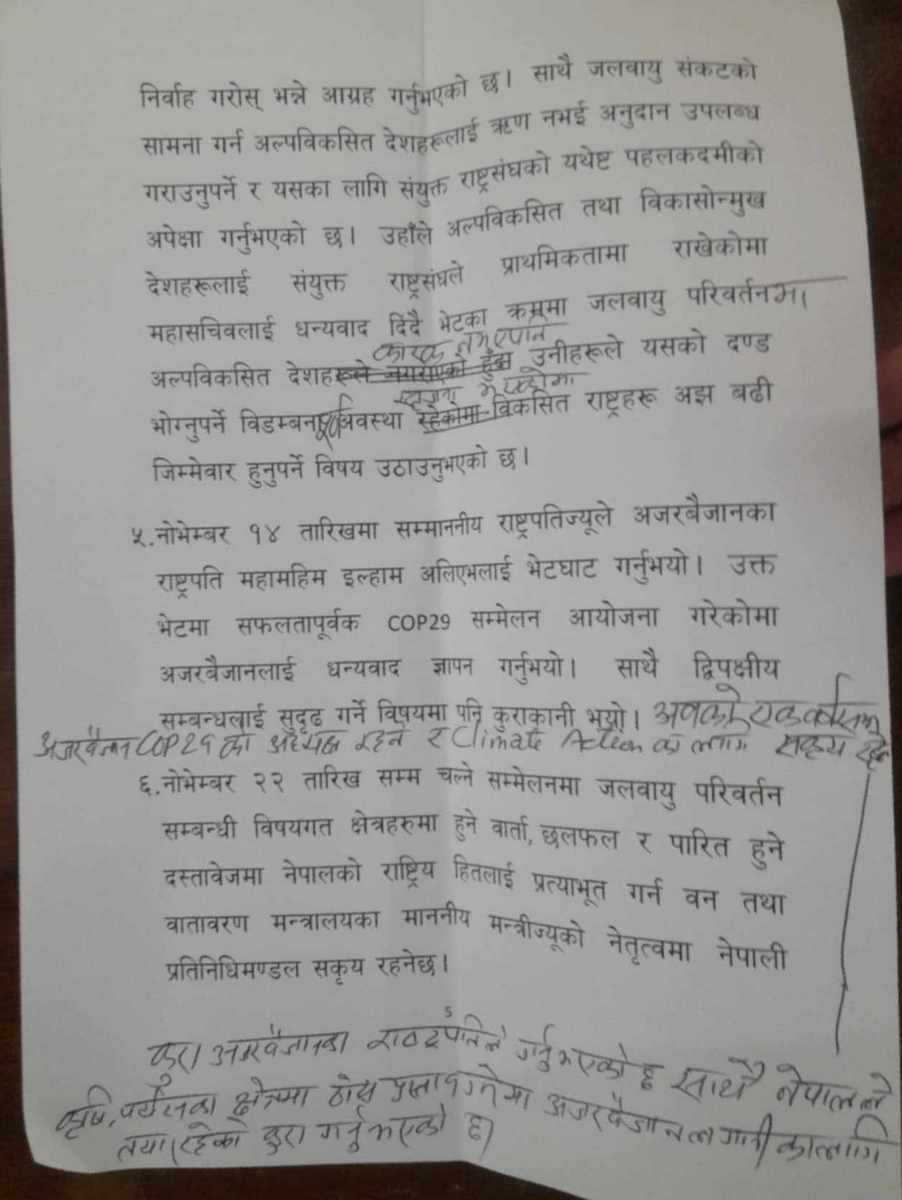 निर्वाह गरोस् भन्ने आग्रह गर्नुभएको छ। साथै जलवायु संकटको
सामना गर्न अल्पविकसित देशहरूलाई ऋण नभई अनुदान उपलब्ध
गराउनुपर्ने र यसका लागि संयुक्त राष्ट्रसंघको यथेष्ट पहलकदमीको
अपेक्षा गर्नुभएको छ। उहाँले अल्पविकसित तथा विकासोन्मुख
देशहरूलाई संयुक्त राष्ट्रसंघले प्राथमिकतामा राखेकोमा
महासचिवलाई धन्यवाद दिदै भेटका क्रममा जलवायु परिवर्तनमा
कारक नभएपनि
अल्पविकसित देशहरूले नगराएको हुँदा उनीहरूले यसको दण्ड
भोग्नुपर्ने विडम्बनापूर्ण अवस्था रहेकोमा विकसित राष्ट्रहरू अझ बढी
जिम्मेवार हुनुपर्ने विषय उठाउनुभएको छ।
५.नोभेम्बर १४ तारिखमा सम्माननीय राष्ट्रपतिज्यूले अजरबैजानका
राष्ट्रपति महामहिम इल्हाम अलिएभलाई भेटघाट गर्नुभयो। उक्त
भेटमा सफलतापूर्वक COP29 सम्मेलन आयोजना गरेकोमा
अजरबैजानलाई धन्यवाद ज्ञापन गर्नुभयो। साथै द्विपक्षीय
सम्बन्धलाई सुदृढ गर्ने विषयमा पनि कुराकानी भयो। अबको एक वर्षसम्म
अजरबैजान COP29 का अध्यक्ष रहने र Climate Action का लागि सकृय रहने
६.नोभेम्बर २२ तारिख सम्म चल्ने सम्मेलनमा जलवायु परिवर्तन
सम्बन्धी विषयगत क्षेत्रहरुमा हुने वार्ता, छलफल र पारित हुने
दस्तावेजमा नेपालको राष्ट्रिय हितलाई प्रत्याभूत गर्न वन तथा
वातावरण मन्त्रालयका माननीय मन्त्रीज्यूको नेतृत्वमा नेपाली
प्रतिनिधिमण्डल सकृय रहनेछ।
कुरा अजरबैजानका राष्ट्रपतिले गर्नुभएको छ साथै नेपालले
कृषि, पर्यटनका क्षेत्रमा ठोस प्रस्ताव गरेमा अजरबैजान लगानीका लागि
तयार रहेको कुरा गर्नुभएको छ।